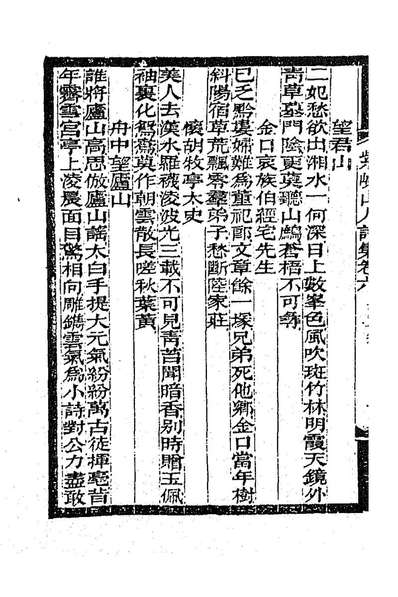 望君山
二妃愁欲出湘水一何深日上數峯色風吹斑竹林明霞天鏡外
靑草墓門陰更莫聽山鷓蒼梧不可尋
金口哀族伯經宅先生
已乏黔婁婦難爲童祀鄉文章餘一塚兄弟死他鄉金口當年樹
斜陽宿草荒飄零羣弟子愁斷陸家莊
懷胡牧亭太史
美人去漢水羅襪淩波光三載不可見靑苔聞暗香別時贈玉佩
袖裏化鴛鴦莫作朝雲散長嗟秋葉黃
舟中望廬山
誰將廬山高思倣廬山謠太白手提大元氣紛紛萬古徒揮毫昔
年霽雪宮亭上凌晨面目驚相向雕鐫雲氣爲小詩對公力盡敢